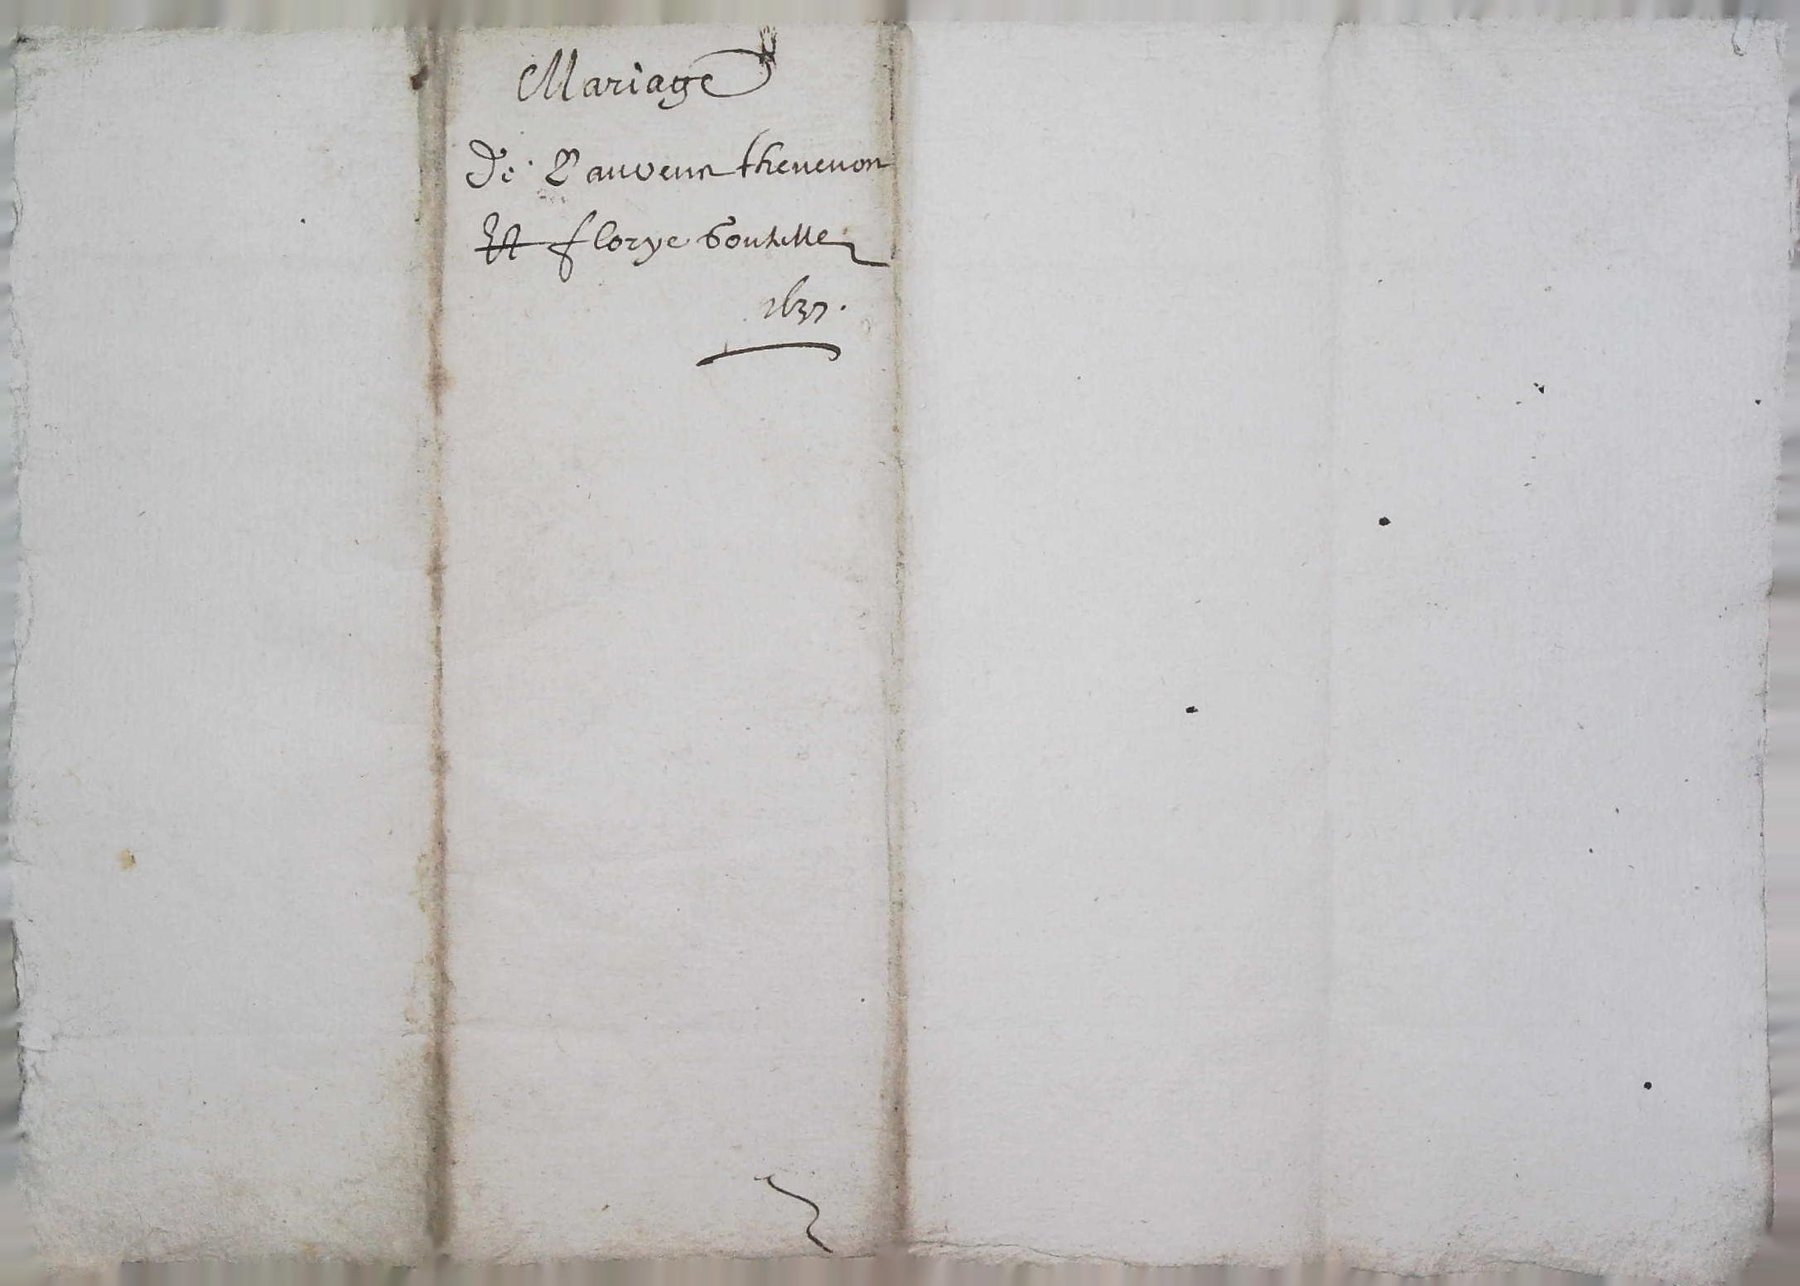 Mariage
De Lauvens thevenon
Et florye boutille
1637.